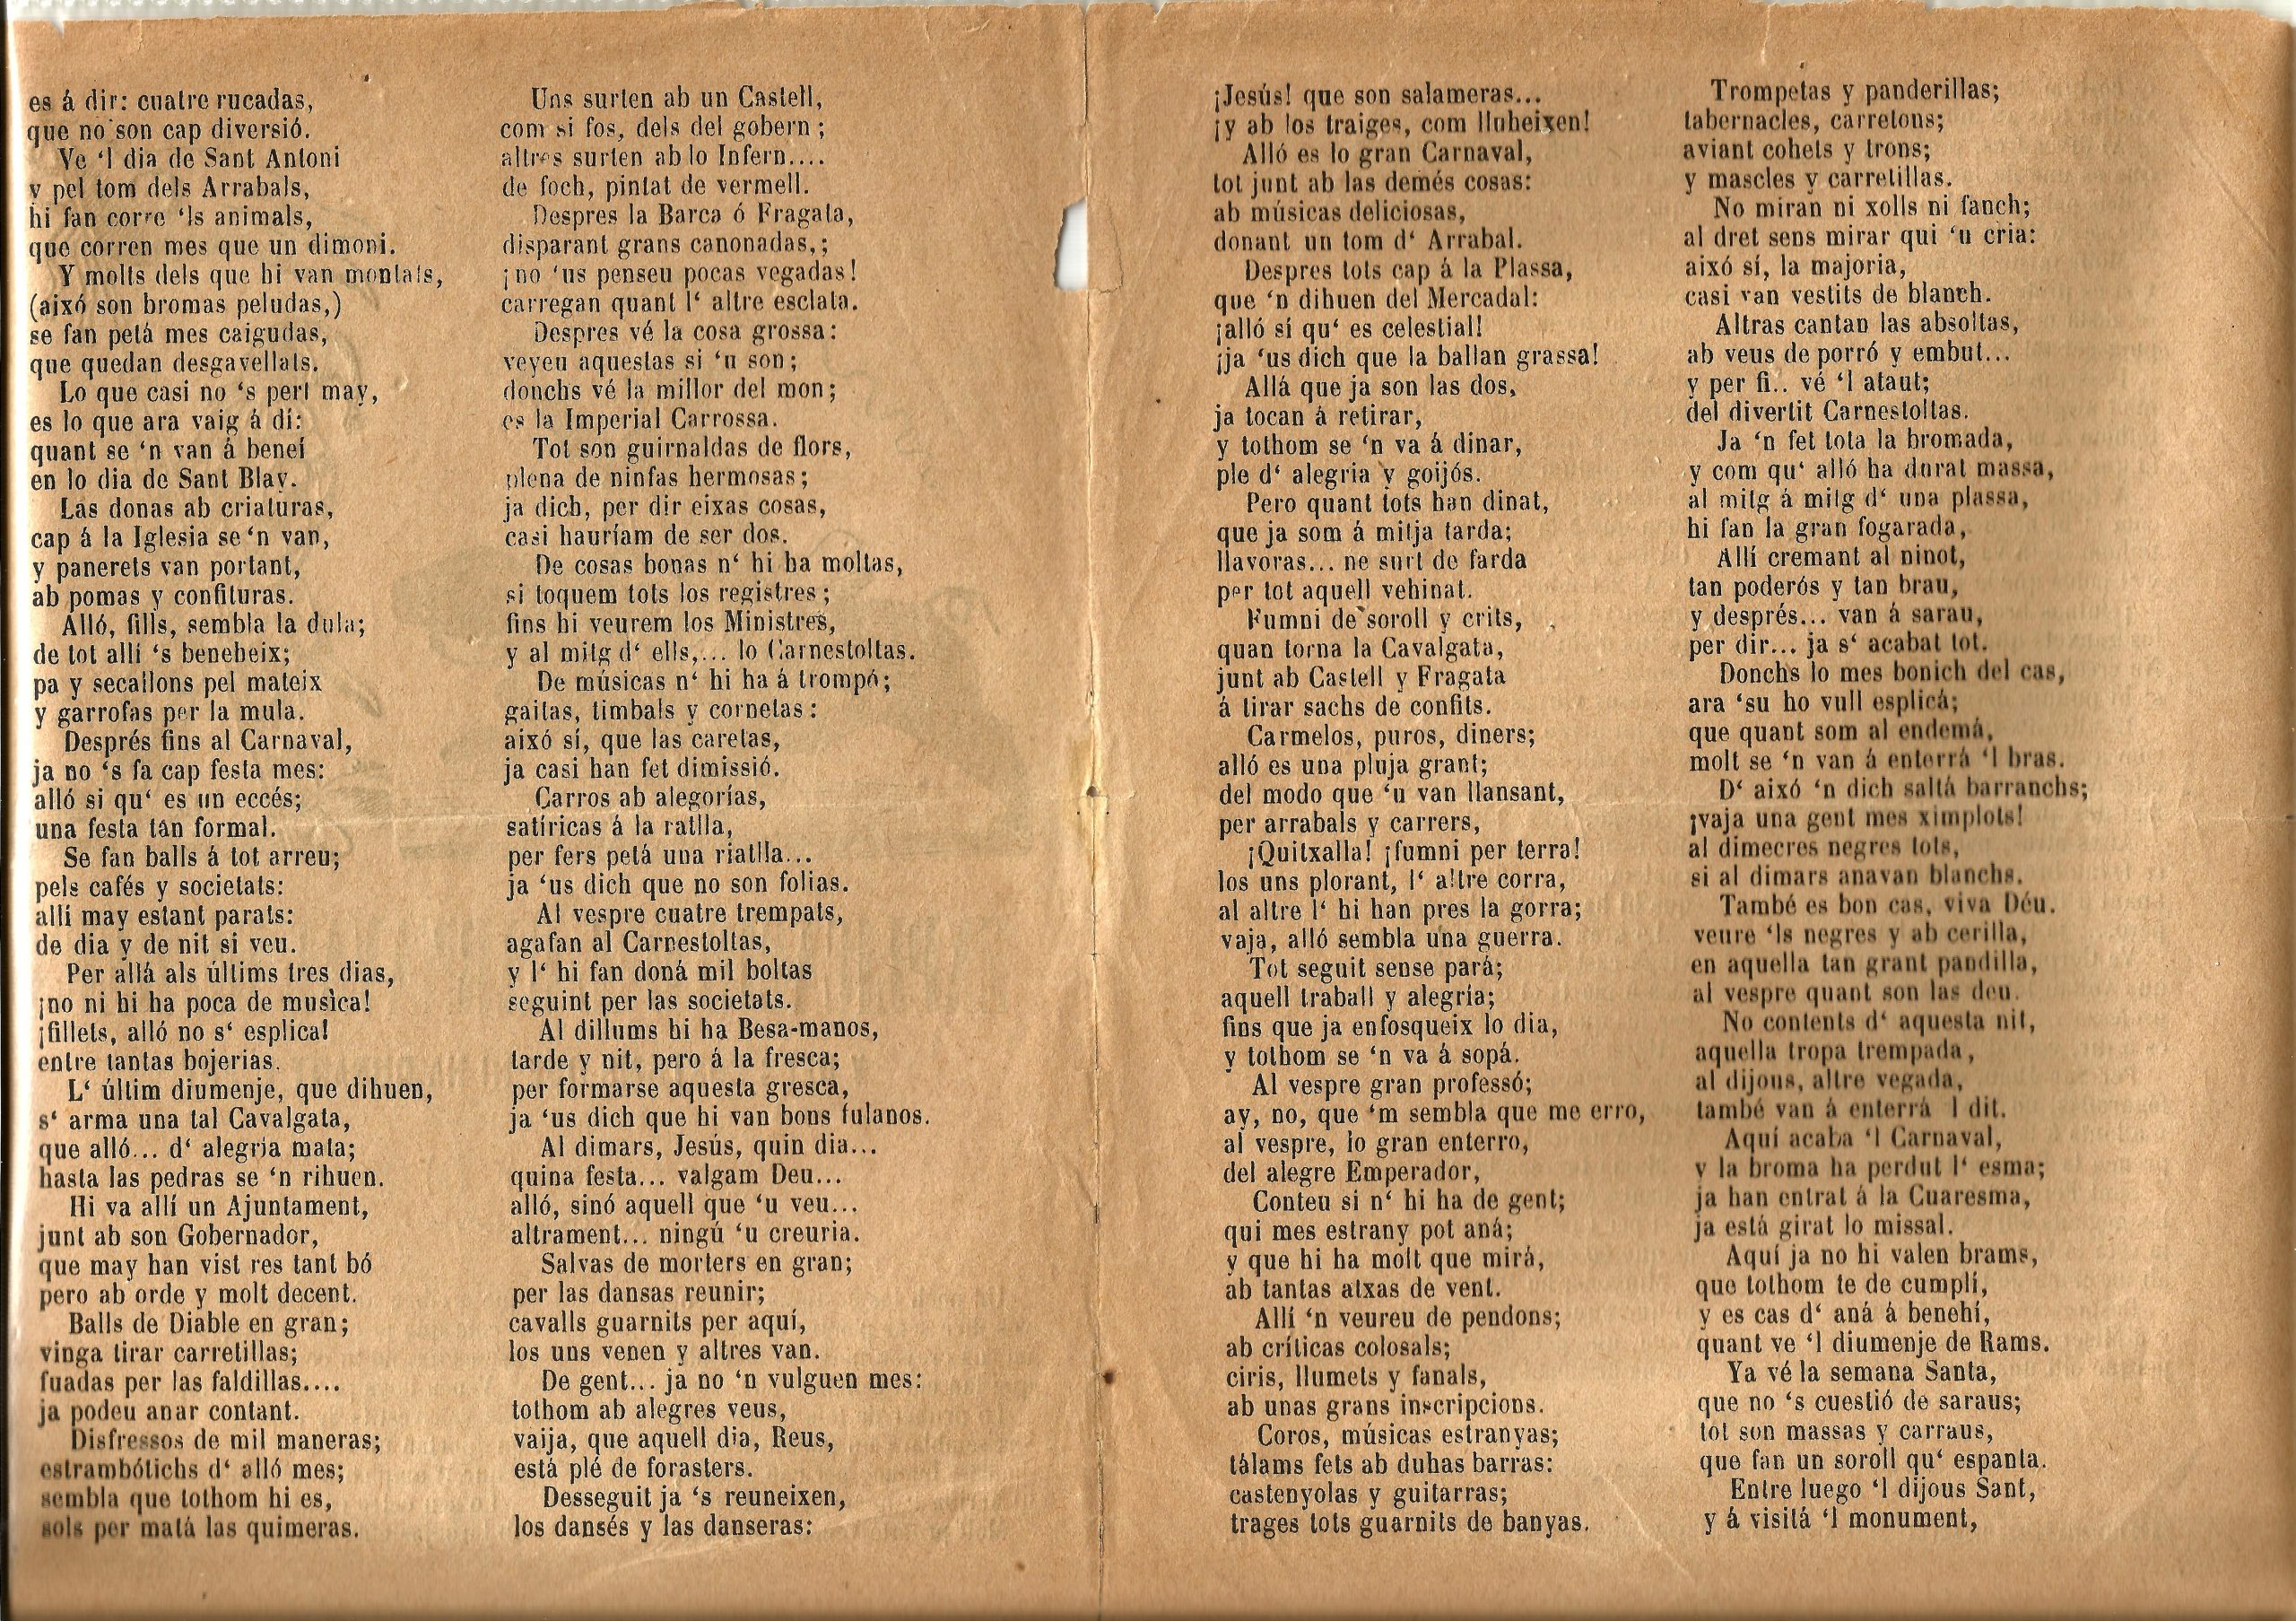 es á dir: cuatre rucadas,
que no son cap diversió.
Ve ‘l dia de Sant Antoni
y pel tom dels Arrabals,
hi fan corre ‘ls animals,
que corren mes que un dimoni.
Y molts dels que hi van montats,
(aixó son bromas peludas,)
se fan petá mes caigudas,
que quedan desgavellats.
Lo que casi no ‘s pert may,
es lo que ara vaig á dí:
quant se ‘n van á beneí
en lo dia de Sant Blay.
Las donas ab criaturas,
cap á la Iglesia se ‘n van,
y panerets van portant,
ab pomas y confituras.
Alló, fills, sembla la dula;
de tot allí ‘s beneheix;
pa y secallons pel mateix
y garrofas per la mula.
Després fins al Carnaval,
ja no ‘s fa cap festa mes:
alló si qu‘ es un eccés;
una festa tan formal.
Se fan balls á tot arreu;
pels cafés y societats:
allí may estant parats:
de dia y de nit si veu.
Per allá als últims tres dias,
¡no ni hi ha poca de musica!
¡fillets, alló no s‘ esplica!
entre tantas bojerias.
L‘ últim diumenje, que dihuen,
s‘ arma una tal Cavalgata,
que alló... d‘ alegria mata;
hasta las pedras se ‘n rihuen.
Hi va allí un Ajuntament,
junt ab son Gobernador,
que may han vist res tant bó
pero ab orde y molt decent.
Balls de Diable en gran;
vinga tirar carretillas;
fuadas per las faldillas....
ja podeu anar contant.
Disfressos de mil maneras;
estrambótichs d‘ alló mes;
sembla que tothom hi es,
sols per matá las quimeras.
Uns surten ab un Castell,
com si fos, dels del gobern;
altres surten ab lo Infern....
de foch, pintat de vermell.
Despres la Barca ó Fragata,
disparant grans canonadas,;
¡no ‘us penseu pocas vegadas!
carregan quant l‘ altre esclata.
Despres vé la cosa grossa:
veyeu aquestas si ‘n son;
donchs vé la millor del mon;
es la Imperial Carrossa.
Tot son guirnaldas de flors,
plena de ninfas hermosas;
ja dich, per dir eixas cosas,
casi hauríam de ser dos.
De cosas bonas n‘ hi ha moltas,
si toquem tots los registres;
fins hi veurem los Ministres,
y al mitg d‘ ells,... lo Carnestoltas.
De músicas n‘ hi ha á trompó;
gaitas, timbals y cornetas:
aixó sí, que las caretas,
ja casi han fet dimissió.
Carros ab alegorías,
satíricas á la ratlla,
per fers petá una riatlla...
ja ‘us dich que no son folias.
Al vespre cuatre trempats,
agafan al Carnestoltas,
y l‘ hi fan doná mil boltas
seguint per las societats.
Al dilluns hi ha Besa-manos,
tarde y nit, pero á la fresca;
per formarse aquesta gresca,
ja ‘us dich que hi van bons fulanos.
Al dimars, Jesús, quin dia...
quina festa... valgam Deu...
alló, sinó aquell que ‘u veu...
altrament... ningú ‘u creuria.
Salvas de morters en gran;
per las dansas reunir;
cavalls guarnits per aquí,
los uns venen y altres van.
De gent... ja no ‘n vulguen mes:
tothom ab alegres veus,
vaija, que aquell dia, Reus,
está plé de forasters.
Desseguit ja ‘s reuneixen,
los dansés y las danseras:
¡Jesús! que son salameras...
¡y ab los traiges, com lluheixen!
Alló es lo gran Carnaval,
tot junt ab las demés cosas:
ab músicas deliciosas,
donant un tom d‘ Arrabal.
Despres tots cap á la Plassa,
que ‘n dihuen del Mercadal:
¡alló sí qu‘ es celestial!
¡ja ‘us dich que la ballan grassa!
Allá que ja son las dos,
ja tocan á retirar,
y tothom se ‘n va á dinar,
ple d‘ alegria y goijós.
Pero quant tots han dinat,
que ja som á mitja tarda;
llavoras... ne surt de farda
per tot aquell vehinat.
Fumni de soroll y crits,
quan torna la Cavalgata,
junt ab Castell y Fragata
á tirar sachs de confits.
Carmelos, puros, diners;
alló es una pluja grant;
del modo que ‘u van llansant,
per arrabals y carrers,
¡Quitxalla! ¡fumni per terra!
los uns plorant, l‘ altre corra,
al altre l‘ hi han pres la gorra;
vaja, alló sembla una guerra.
Tot seguit sense pará;
aquell traball y alegría;
fins que ja enfosqueix lo dia,
y tothom se ‘n va á sopá.
Al vespre gran professó;
ay, no, que ‘m sembla que me erro,
al vespre, lo gran enterro,
del alegre Emperador,
Conteu si n‘ hi ha de gent;
qui mes estrany pot aná;
y que hi ha molt que mirá,
ab tantas atxas de vent.
Allí ‘n veureu de pendons;
ab críticas colosals;
ciris, llumets y fanals,
ab unas grans inscripcions.
Coros, músicas estranyas;
tálams fets ab duhas barras:
castenyolas y guitarras;
trages tots guarnits de banyas.
Trompetas y panderillas;
tabernacles, carretons;
aviant cohets y trons;
y mascles y carretillas.
No miran ni xolls ni fanch;
al dret sens mirar qui ‘u cria:
aixó sí, la majoria,
casi van vestits de blanch.
Altras cantan las absoltas,
ab veus de porró y embut...
y per fi.. vé ‘l ataut;
del divertit Carnestoltas.
Ja ‘n fet tota la bromada,
y com qu‘ alló ha durat massa,
al mitg á mitg d‘ una plassa,
hi fan la gran fogarada,
Allí cremant al ninot,
tan poderós y tan brau,
y després... van á sarau,
per dir... ja s‘ acabat tot.
Donchs lo mes bonich del cas,
ara ‘su ho vull esplicá;
que quant som al endemá,
molt se ‘n van á enterrá ‘l bras.
D‘ aixó ‘n dich saltá barranchs;
¡vaja una gent mes ximplots!
al dimecres negres tots,
si al dimars anavan blanchs.
També es bon cas, viva Déu.
veure ‘ls negres y ab cerilla,
en aquella tan grant pandilla,
al vespre quant son las deu.
No contents d‘ aquesta nit,
aquella tropa trempada,
al dijous, altre vegada,
també van á enterrá l dit.
Aquí acaba ‘l Carnaval,
y la broma ha perdut l‘ esma;
ja han entrat á la Cuaresma,
ja está girat lo missal.
Aquí ja no hi valen brams,
que tothom te de cumplí,
y es cas d‘ aná á benehí,
quant ve ‘l diumenje de Rams.
Ya vé la semana Santa,
que no ‘s cuestió de saraus;
tot son massas y carraus,
que fan un soroll qu‘ espanta.
Entre luego ‘l dijous Sant,
y á visitá ‘l monument,